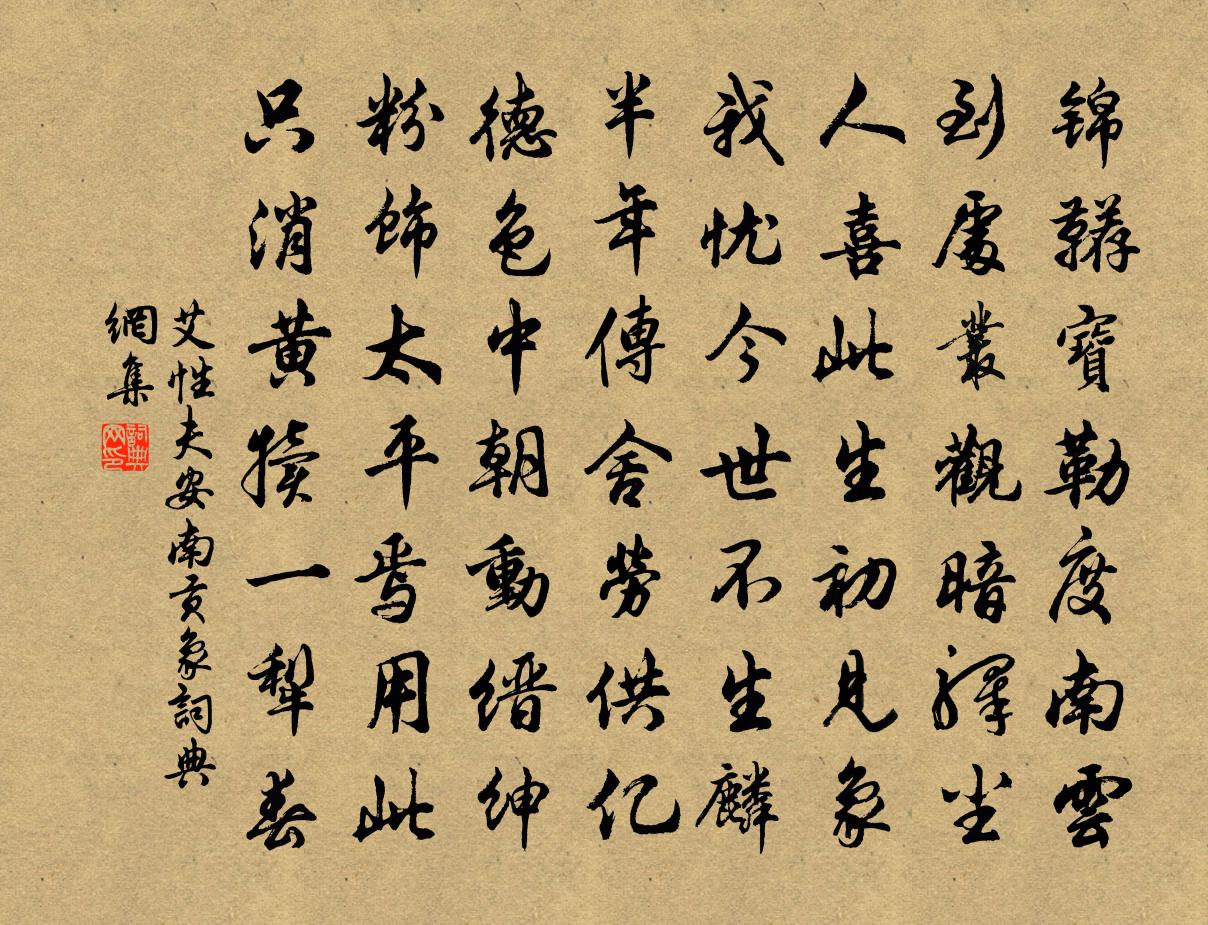 锦韉寶勒度南雲
到處叢觀暗驛尘
人喜此生初见象
我忧今世不生麟
半年傳舍勞供亿
德色中朝動缙绅
粉饰太平焉用此
只消黄犊一犁春
艾性夫安南贡象詞典
網集
詞典网印